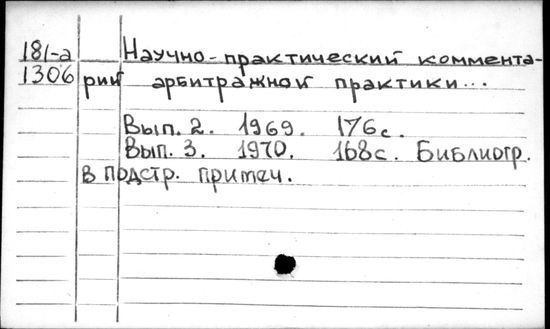 181-а Научно-практический коммента-
1306 рий арбитражной практики...
Вып. 2. 1969. 176с.
Вып. 3. 1970. 168с. Библиогр.
в подстр. примеч.